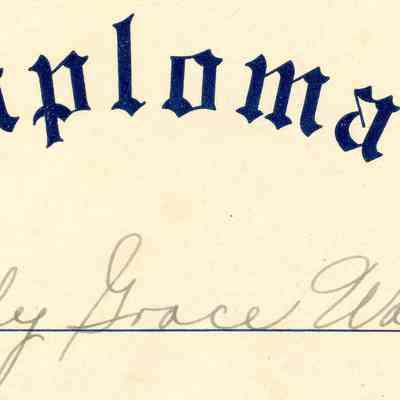 iploma
ly Grace Wa